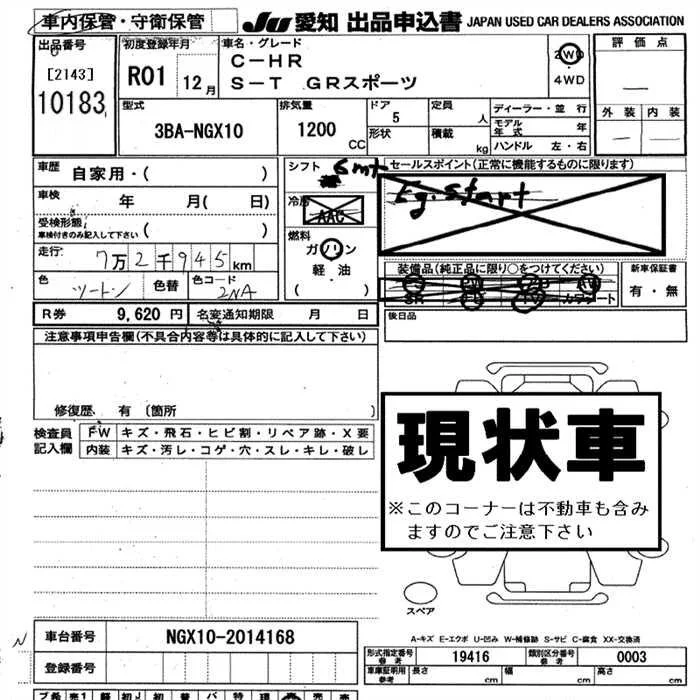 車内保管・守衛保管
JU 愛知 出品申込書 JAPAN USED CAR DEALERS ASSOCIATION
出品番号
[2143]
10183
初度登録年月
R01 12月
車名・グレード
C-HR
S-T GRスポーツ
2WD
4WD
評価点
外装 内装
型式
3BA-NGX10
排気量
1200 CC
ドア 5
形状
定員 人
積載 kg
ディーラー・並行
モデル年式 年
ハンドル 左・右
車歴 自家用・( )
車検 年 月( 日)
受検形態
車検付きのみ記入して下さい ( )
走行 7万2千945km
色 ツートン 色替 色コード 2NA
シフト Smt
冷房 AAC
燃料
ガソリン
軽・油
( )
セールスポイント(正常に機能するものに限ります)
Eg. Start
装備品(純正品に限り○をつけてください)
SR
新車保証書
有・無
R券 9,620円 名変通知期限 月 日
後日品
注意事項申告欄(不具合内容等は具体的に記入して下さい)
修復歴 有 〔箇所 〕
検査員記入欄
FW キズ・飛石・ヒビ割・リペア跡・X要
内装 キズ・汚レ・コゲ・穴・スレ・キレ・破レ
現状車
※このコーナーは不動車も含み
ますのでご注意下さい
スペア
A-キズ E-エクボ U-凹み W-補修跡 S-サビ C-腐食 XX-交換済
N
車台番号 NGX10-2014168
登録番号
形式指定番号 参考 19416 類別区分番号 参考 0003
車庫証明用 参考 長さ cm 幅 cm 高さ cm